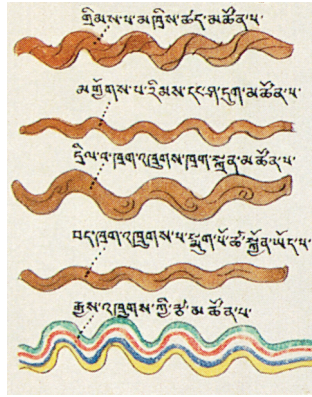 གྲིམས་པ་མཁྲིས་ཚད་མཚོན་པ་
མགྱོགས་པ་རིམས་དང་ཤ་དུག་མཚོན་པ་
དྲིལ་བ་ཁྲག་འཁྲུགས་ཁྲག་སྐྲན་མཚོན་པ་
བད་ཁྲག་འཁྲུགས་པ་སྨུག་པོ་ཚ་སྐྱོན་ཡོང་པ་
རྒྱས་འཁྲུགས་ཀྱི་རྩ་མཚོན་པ་